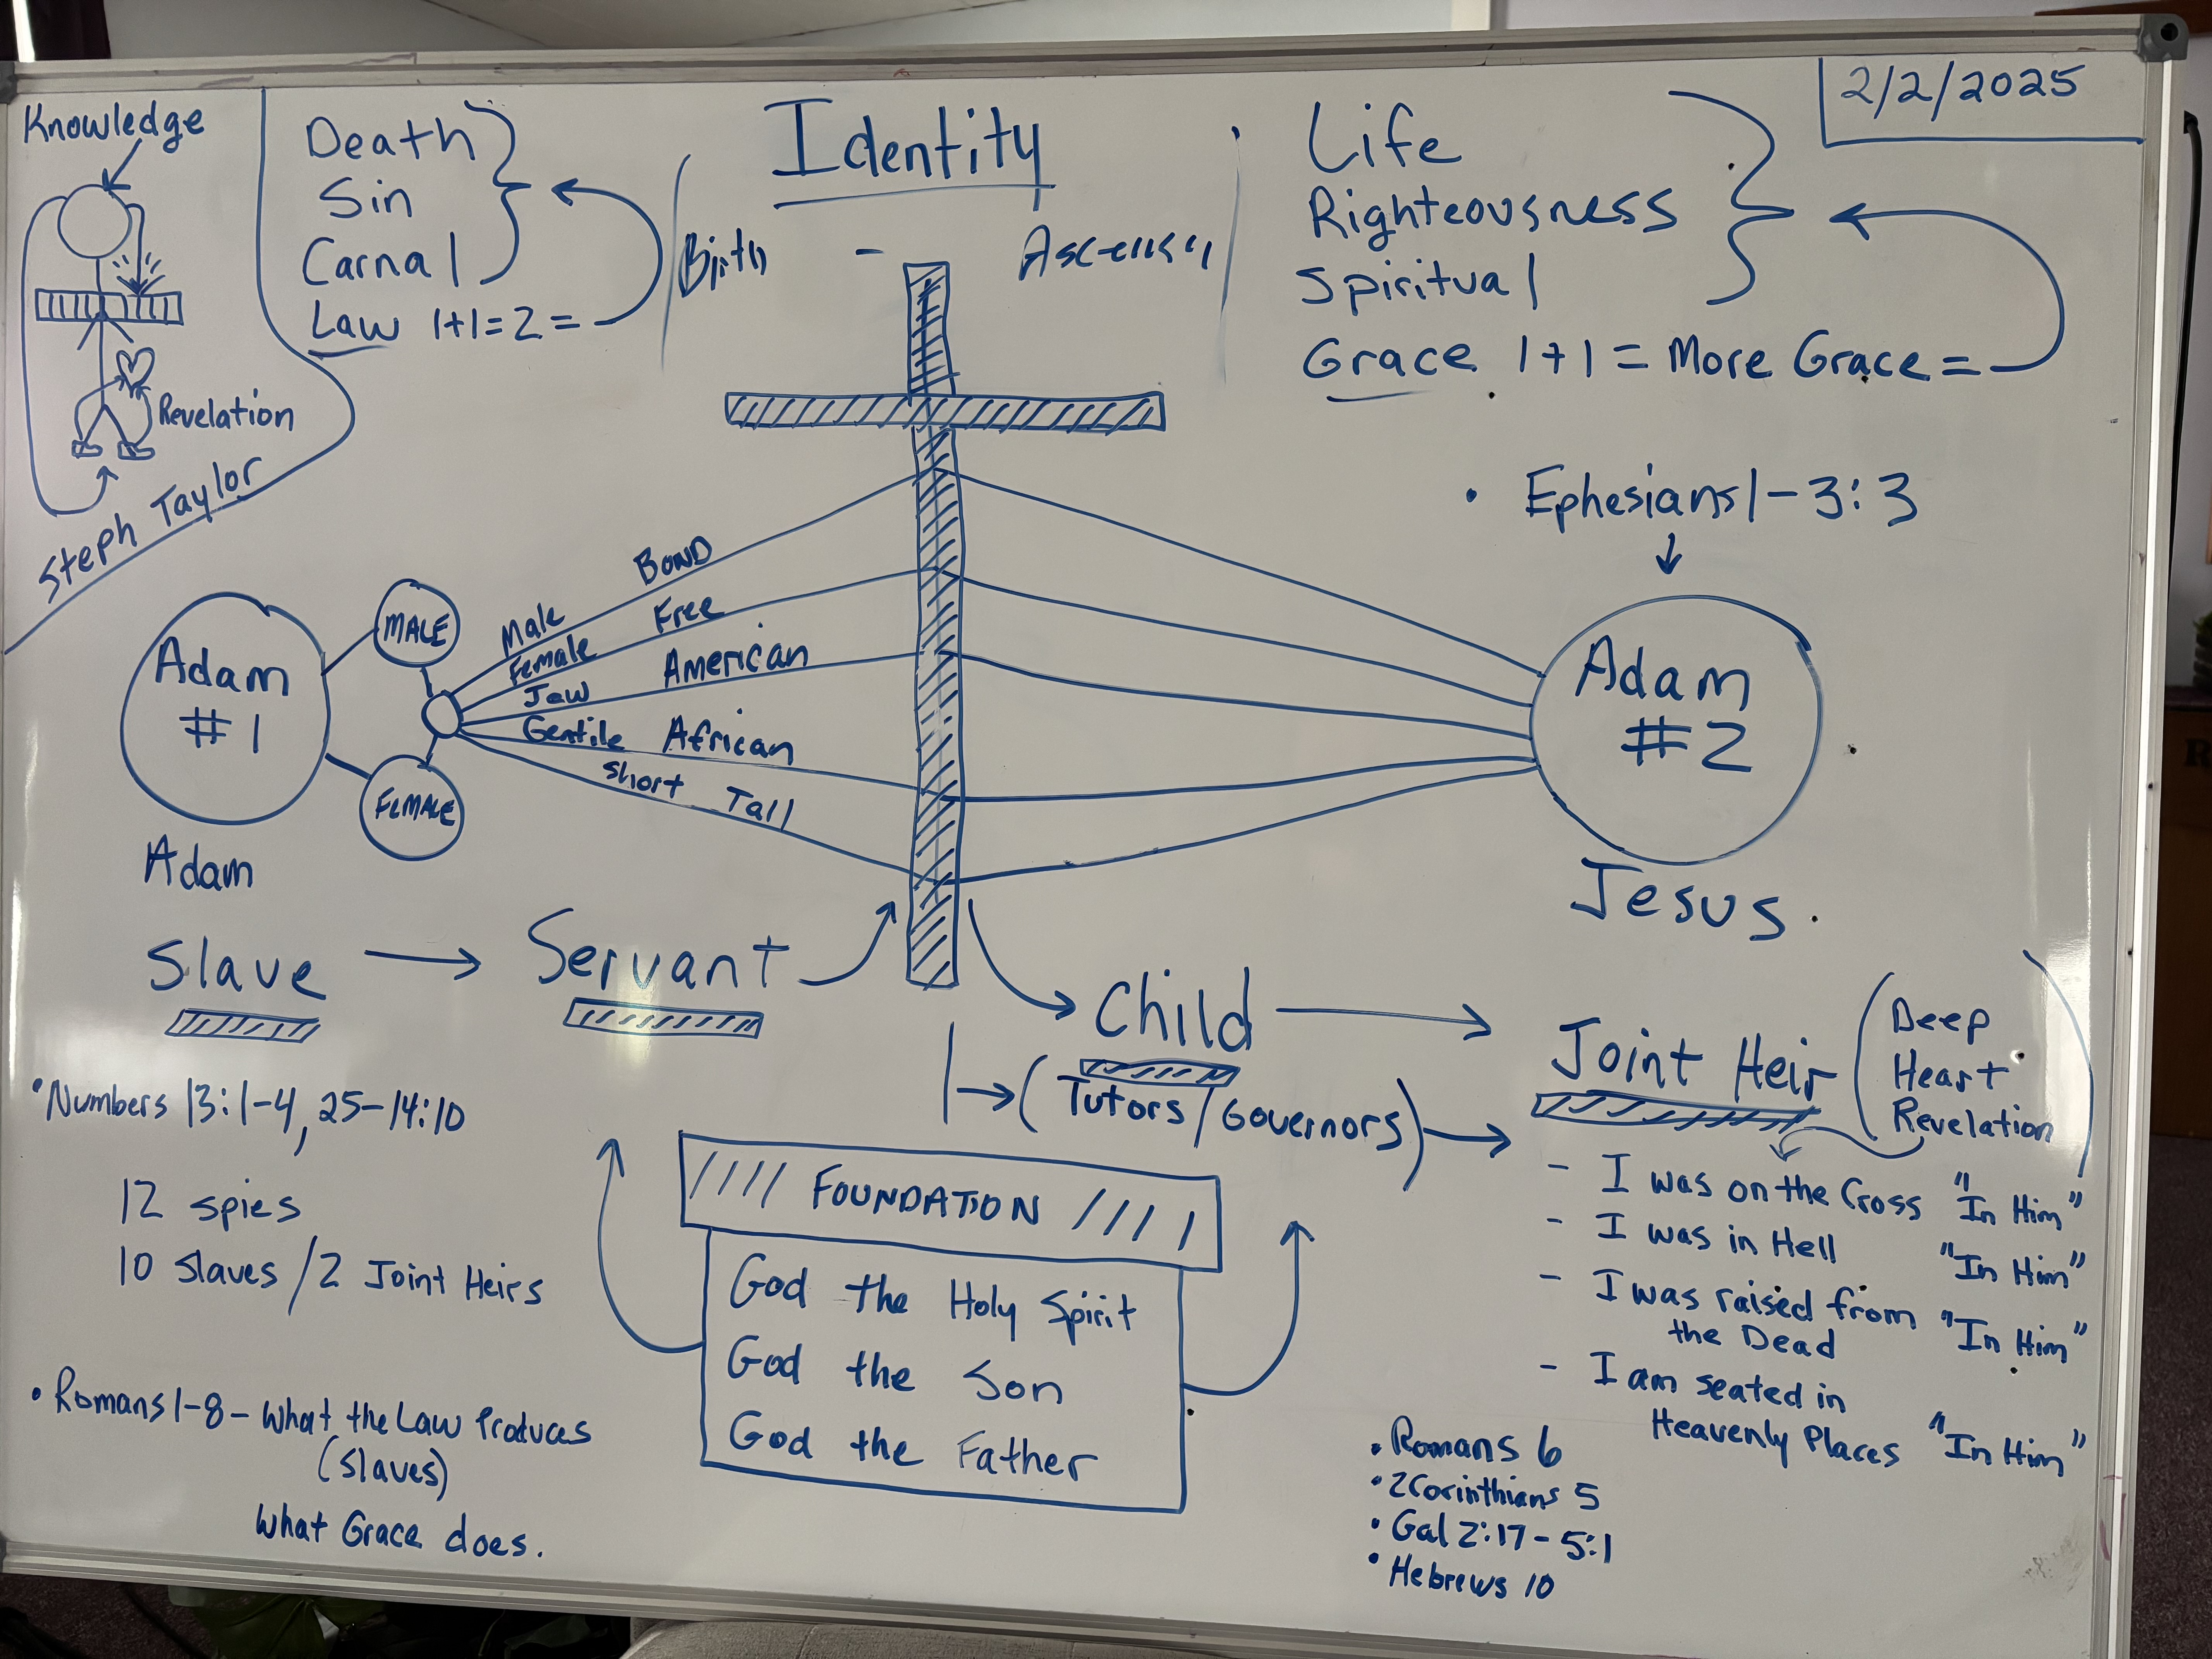 2/2/2025
Knowledge
Revelation
Steph Taylor
Death
Sin
Carnal
Law 1+1=2=
Identity
Birth -
Life
Righteousness
Spiritual
Grace 1+1 = More Grace =
• Ephesians 1-3:3
Adam
#1
Adam
MALE
FEMALE
Male BOND
Female Free
Jew American
Gentile African
Short Tall
Adam
#2
Jesus.
Slave
Servant
Child
(Tutors/Governors)
Joint Heir
(Deep
Heart
Revelation)
- I was on the Cross "In Him"
- I was in Hell "In Him"
- I was raised from
the Dead "In Him"
- I am seated in
Heavenly Places "In Him"
• Numbers 13:1-4, 25-14:10
12 spies
10 slaves/2 Joint Heirs
• Romans 1-8 - What the Law Produces
(slaves)
What Grace does.
//// FOUNDATION ////
God the Holy Spirit
God the Son
God the Father
• Romans 6
• 2Corinthians 5
• Gal 2:17-5:1
• Hebrews 10